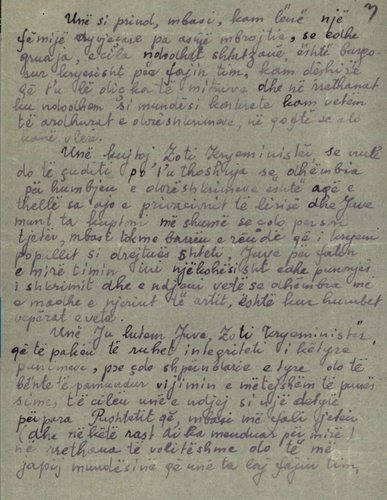 Unë si prind, mbasi, kam lënë një
fëmijë dyvjeçare pa asnjë mbrojtje, se edhe
gruaja, e cila ndodhet shtatzanë, është burgo-
sur kryesisht për fajin tim, kam dëshirë
që t'u lë diçka të miturve dhe në rrethanat
ku ndodhem si mundësi konkrete kam vetëm
të ardhurat e dorëshkrimeve, në qoftë se ato
kanë vlerë.
Unë kujtoj Zoti Kryeministër, se nuk
do të çuditi po t'u thoshja se dhëmbja
për humbjen e dorëshkrimeve është aqë e
thellë sa ajo e privacionit të lirisë dhe Juve
munt ta kuptoni më shumë se çdo person
tjetër, mbasi tokme barrën e rëndë që i
popullit si drejtues shteti, Juve për fatin
e mirë timin jini njëkohësisht edhe punonjës
i shkrimit dhe e ndjeni vetë se dhëmbja më
e madhe e njeriut të artit, është kur humbet
veprat e veta.
Unë Ju lutem Juve, Zoti Kryeministër,
që të paktën të ruhet integriteti i këtyre
punimeve, pse çdo shpërndarje e tyre do të
bënte të pamundur vijimin e mëtejshëm të punës
sime, të cilën unë e ndjej si një detyrë
përpara Pushtetit që, mbasi më fali jetën
(dhe në këtë rast ai ka menduar për mirë)
në rrethana të volitëshme do të më
japij mundësinë që unë ta laj fajin tim,